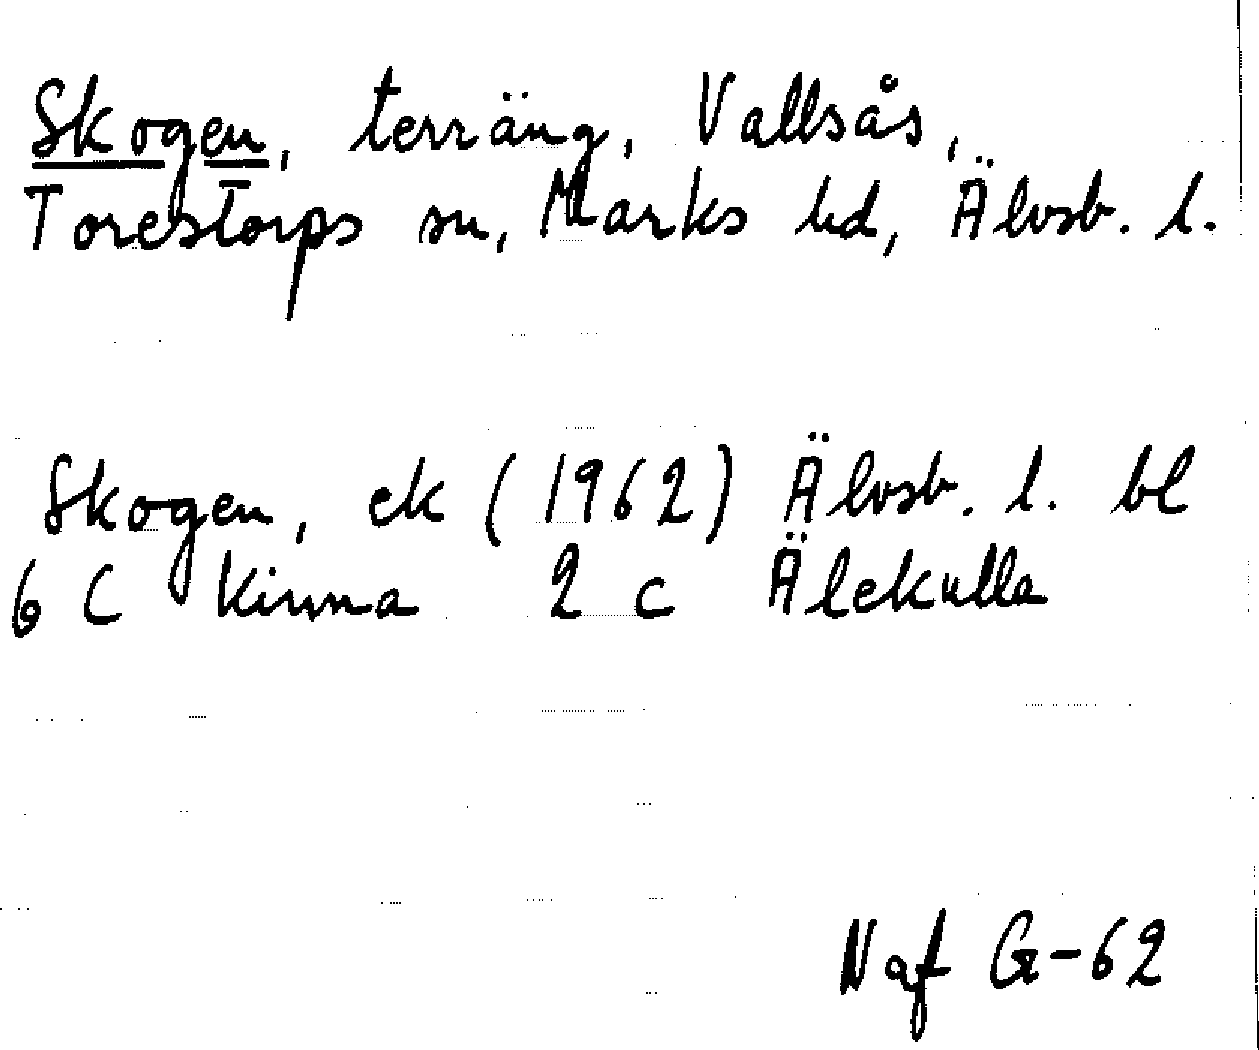 Skogen, terräng, Vallsås,
Torestorps sn, Marks hd, Älvsb. l.
Skogen, ek (1962) Älvsb. l. bl
6 C Kinna 2 c Älekulla
Naf G-62